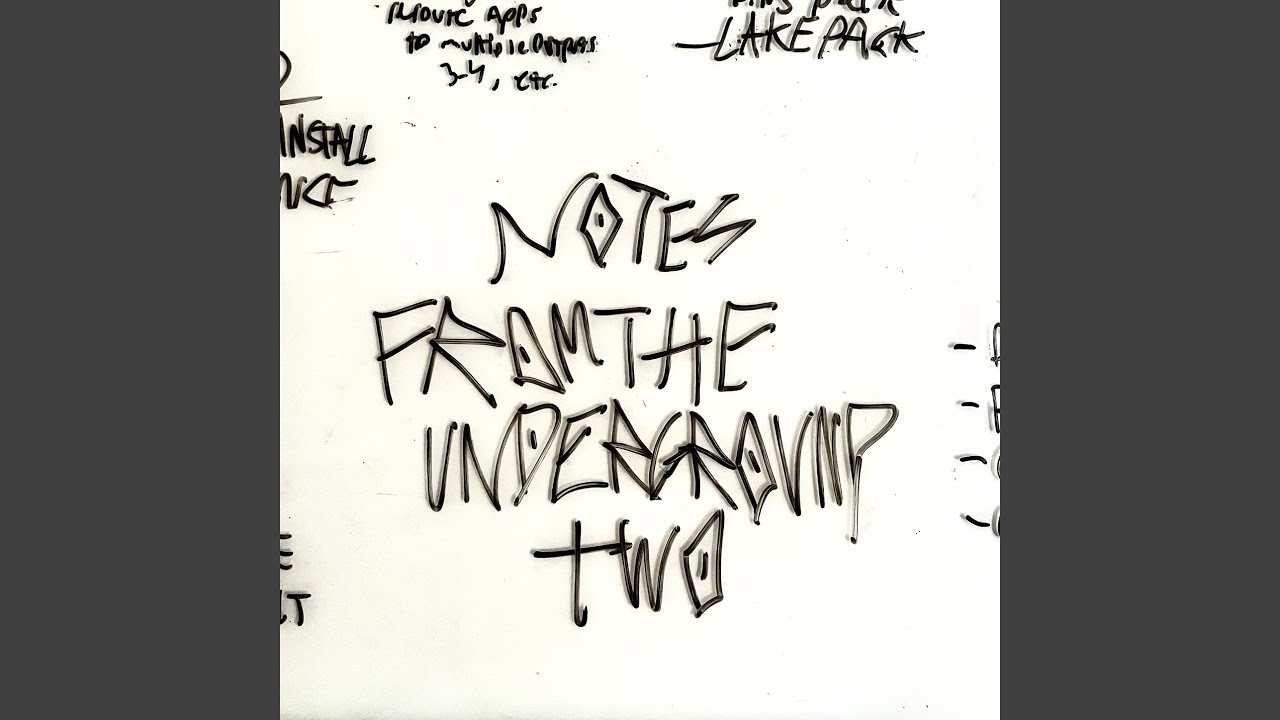 Apps
to multiple outputs
3-4, etc.
LAKE PACK
INSTALL
NOTES
FROM THE
UNDERGROUND
TWO